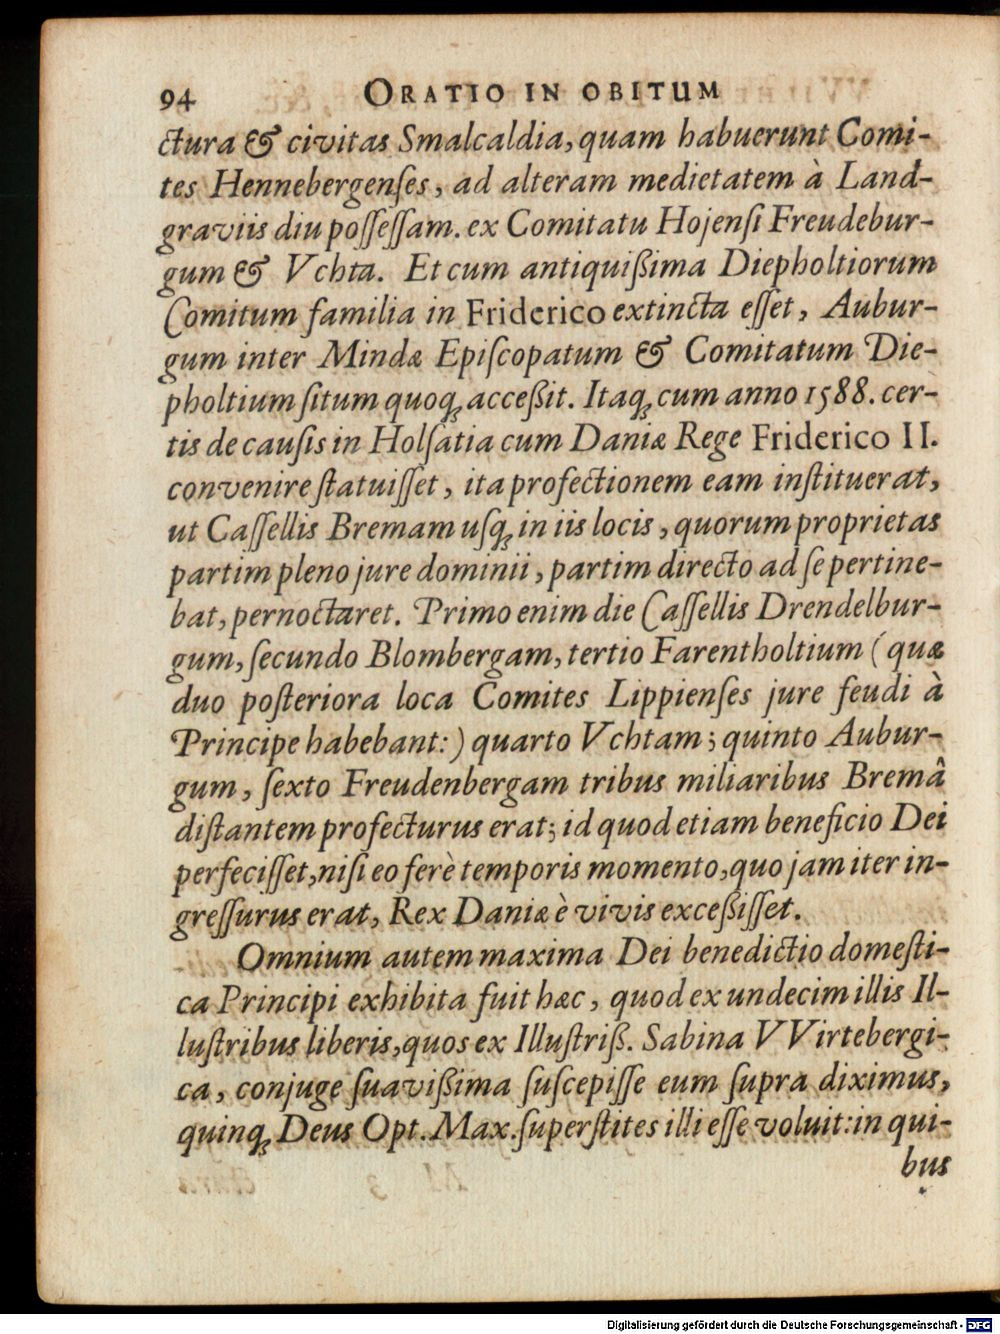 94 ORATIO IN OBITUM
ctura & civitas Smalcaldia, quam habuerunt Comi-
tes Hennebergenſes, ad alteram medietatem à Land-
graviis diu poſſeſſam. ex Comitatu Hojenſi Freudebur-
gum & Vchta. Et cum antiquißima Diepholtiorum
Comitum familia in Friderico extincta eſſet, Aubur-
gum inter Mindæ Epiſcopatum & Comitatum Die-
pholtium ſitum quoq; acceßit. Itaq; cum anno 1588. cer-
tis de cauſis in Holſatia cum Daniæ Rege Friderico II.
convenire ſtatuiſſet, ita profectionem eam inſtituerat,
ut Caſſellis Bremam uſq; in iis locis, quorum proprietas
partim pleno jure dominii, partim directo ad ſe pertine-
bat, pernoctaret. Primo enim die Caſſellis Drendelbur-
gum, ſecundo Blombergam, tertio Farentholtium (quæ
duo poſteriora loca Comites Lippienſes jure feudi à
Principe habebant:) quarto Vchtam; quinto Aubur-
gum, ſexto Freudenbergam tribus miliaribus Bremâ
diſtantem profecturus erat; id quod etiam beneficio Dei
perfeciſſet, niſi eo ferè temporis momento, quo jam iter in-
greſſurus erat, Rex Daniæ è vivis exceßiſſet.
Omnium autem maxima Dei benedictio domeſti-
ca Principi exhibita fuit hæc, quod ex undecim illis Il-
luſtribus liberis, quos ex Illuſtriß. Sabina VVirtebergi-
ca, conjuge ſuavißima ſuſcepiſſe eum ſupra diximus,
quinq; Deus Opt. Max. ſuperſtites illi eſſe voluit: in qui-
bus
Digitalisierung gefördert durch die Deutsche Forschungsgemeinschaft - DFG